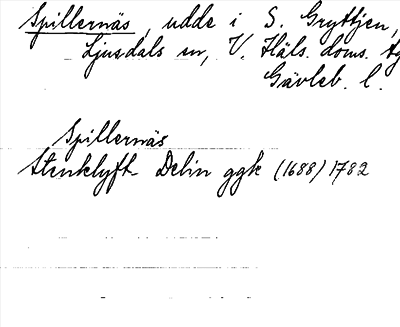 Spillernäs, udde i S. Gryttjen,
Ljusdals sn, V. Häls. doms.
Gävleb. l.
Spillernäs
Stenklyft Delin ggk (1688) 1782